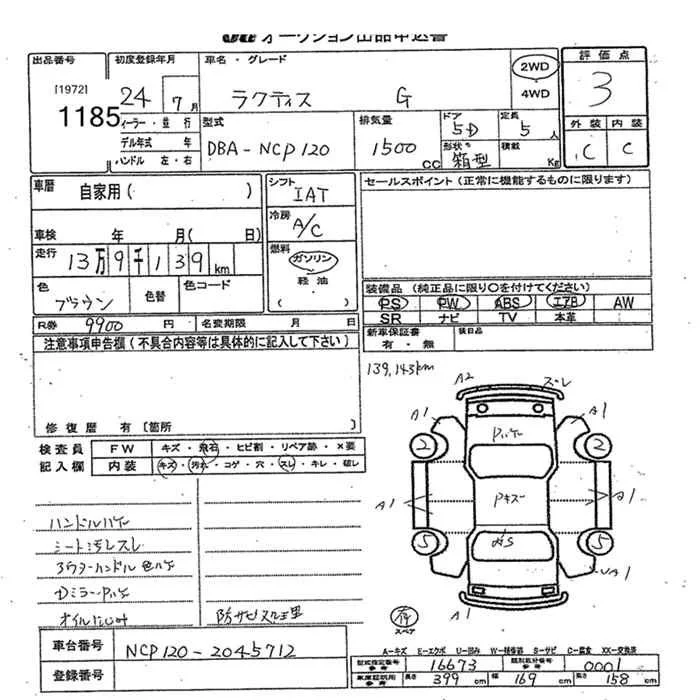 オークション出品申込書
出品番号 初度登録年月 車名・グレード 評価点
[1972] 1185
24 7月 ラクティス G 2WD 4WD 3
ィーラー・並行 型式 排気量 ドア 定員 外装 内装
デル年式 年 DBA-NCP120 1500cc 5D 5人 C C
ハンドル 左・右 形状 箱型 積載 Kg
車歴 自家用( ) シフト IAT セールスポイント(正常に機能するものに限ります)
車検 年 月( 日) 冷房 A/C
走行 13万9千139km 燃料 ガソリン 軽油 ( )
色 ブラウン 色替 色コード
装備品(純正品に限り○を付けてください)
PS PW ABS エアB AW
SR ナビ TV 本革
R券 9900円 名変期限 月 日 新車保証書 有・無 欠品名
注意事項申告欄(不具合内容等は具体的に記入して下さい)
139,143km
修復歴 有〔箇所 〕
検査員記入欄 FW キズ・飛石・ヒビ割・リペア跡・×要
内装 キズ・汚れ・コゲ・穴・スレ・キレ・破レ
A2 ズレ
A1 A1
Pハゲ
2 2
A1 Pキズ A1
5 5
A1
A1
スペア
ハンドルハゲ
シート汚レスレ
オイルにじみ
車台番号 NCP120-2045712
登録番号
A-キズ E-エクボ U-凹み W-補修跡 S-サビ C-腐食 XX-交換済
型式指定番号 16673 類別区分番号 0001
長さ 399cm 幅 169cm 高さ 158cm